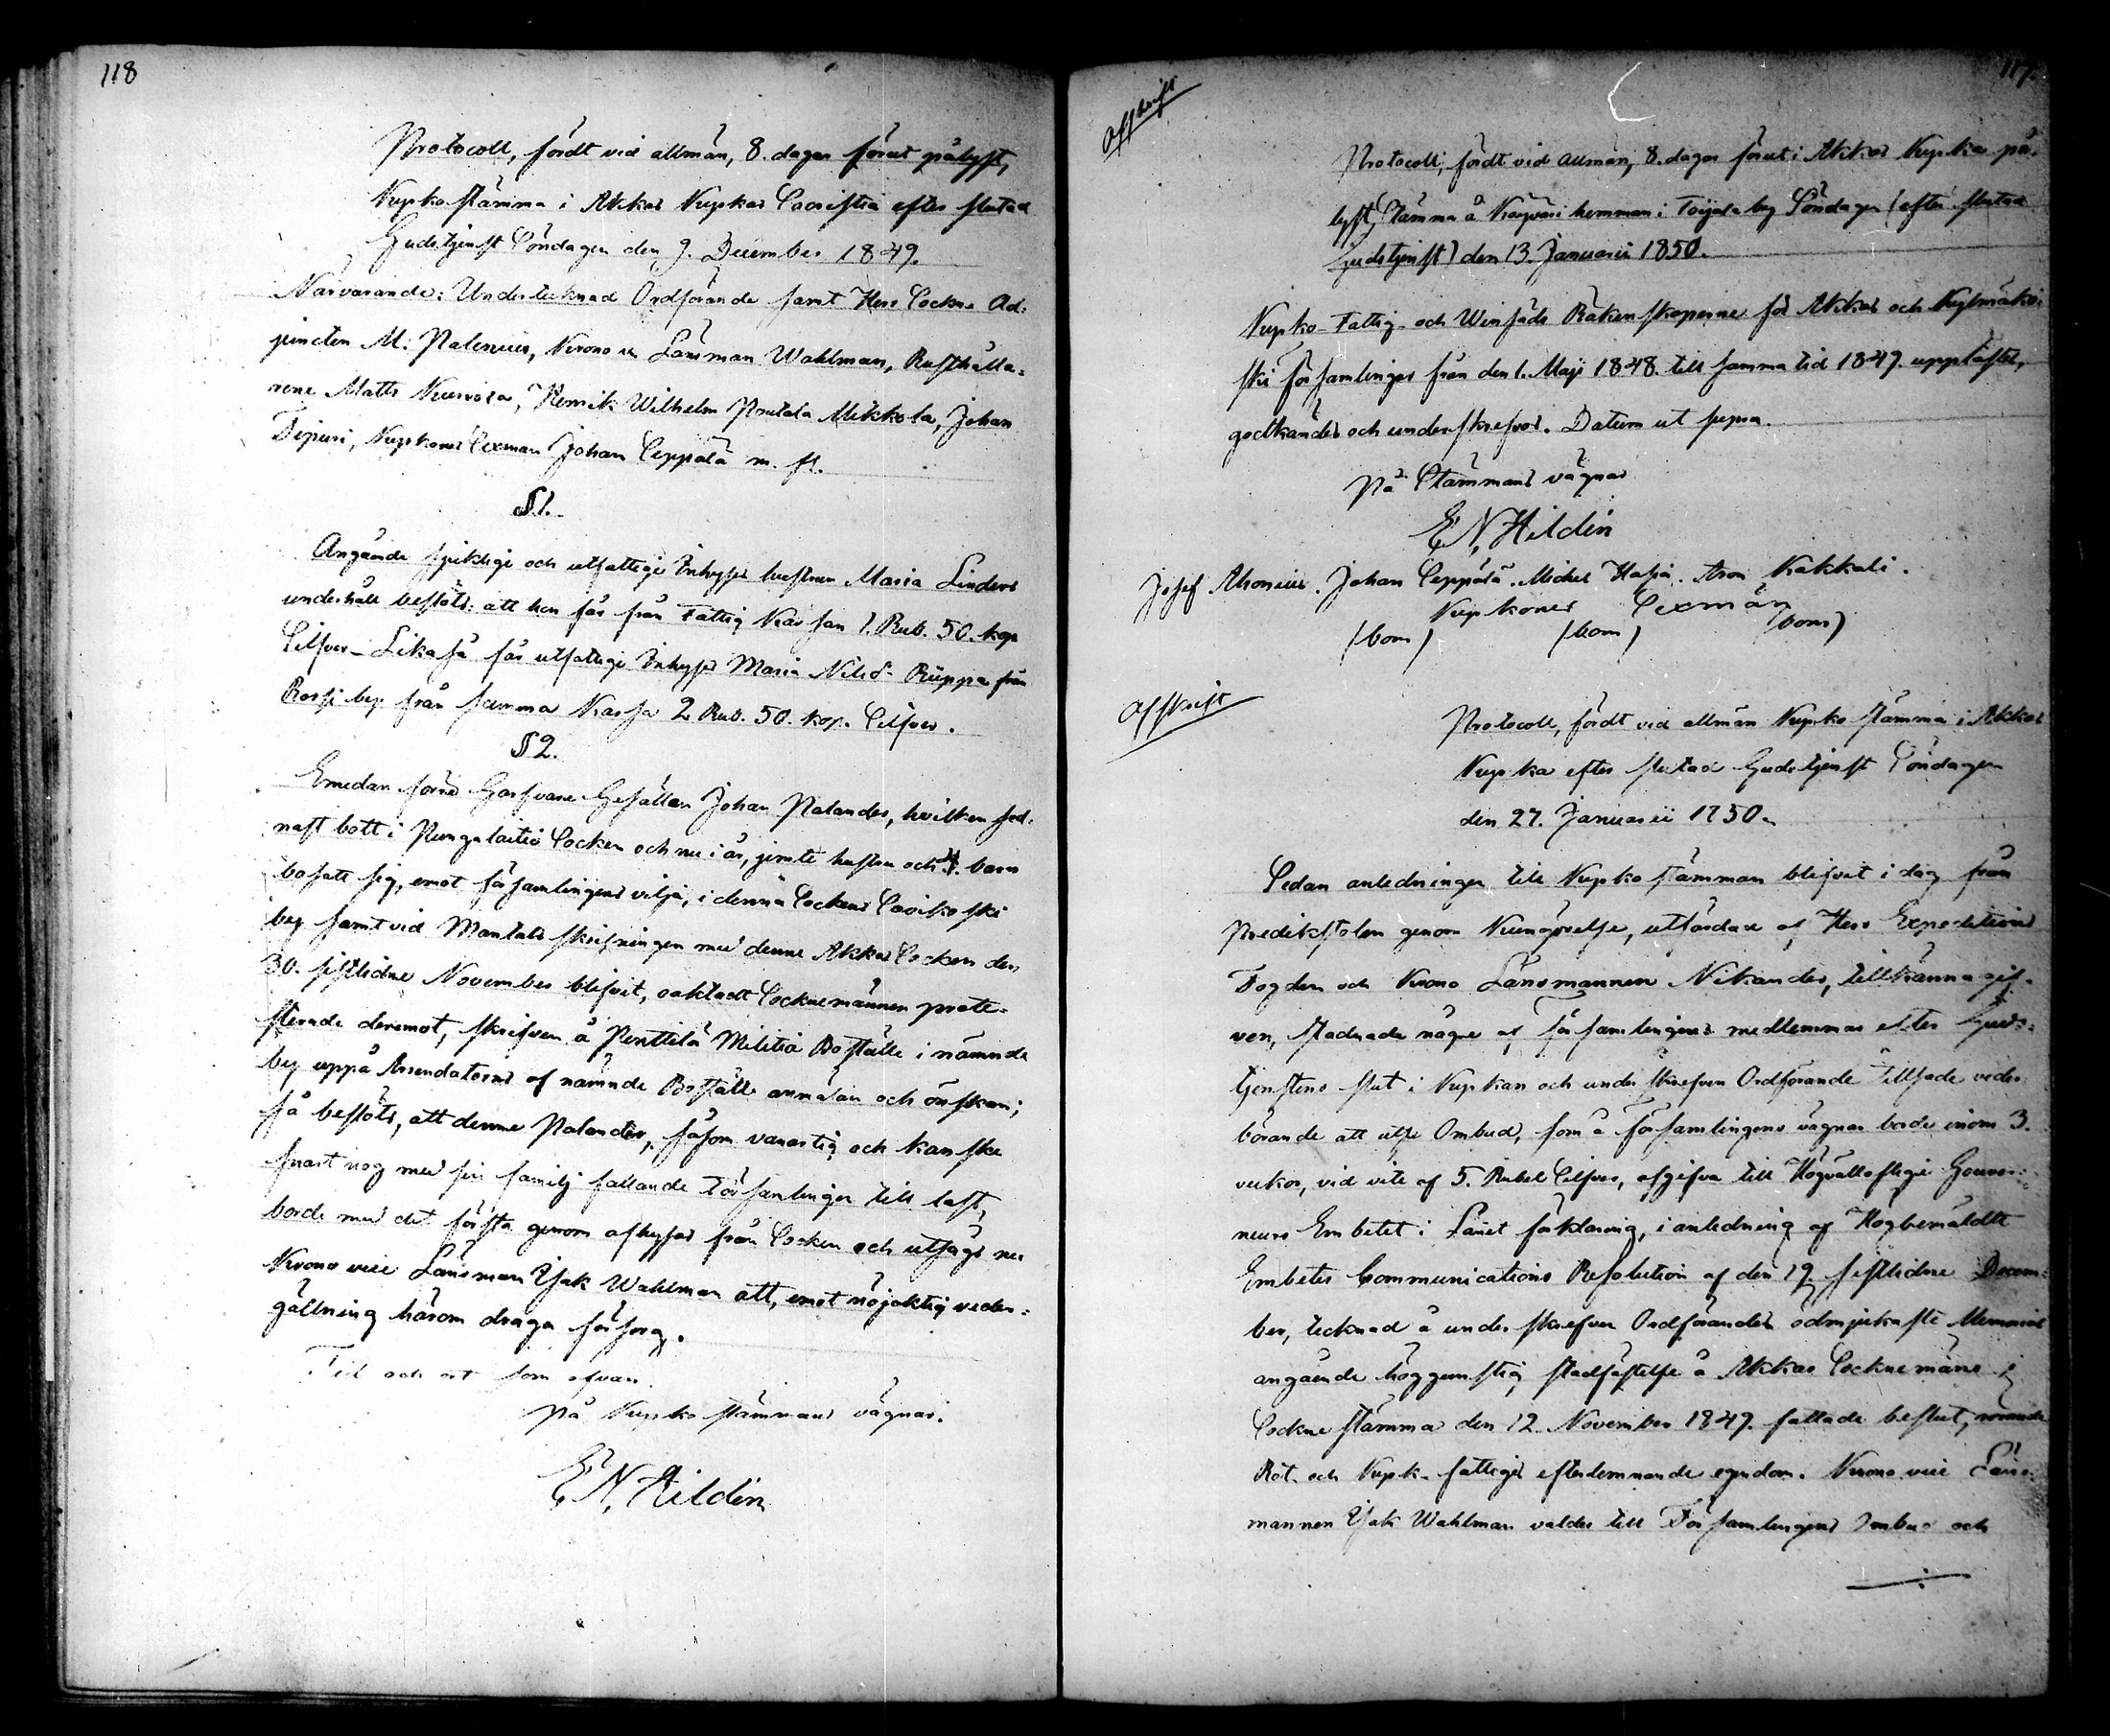 118
Protocoll, fördt vid allmän, 8. dagar förut pålyst,
Kyrkostämma i Akkas Kyrkas Sacristia efter slutad
Gudstjenst Söndagen den 9. December 1849.
Närvarande: Undertecknad Ordförande samt Herr Sockne Ad-
juncten M. Palenius, Krono v. Länsman Wahlman, Rusthålla-
rene Matts Kurvola, Henrik Wilhelm Pentala Mikkola, Johan
Tipuri, Kyrkones Sexman Johan Seppälä m. fl.
§ 1.
Angående sjuklige och utfattige Inhyses hustrun Maria Linders
underhåll beslöts: att hon får från Fattig Kassan 1. Rub. 50. kop.
Silfver – Likaså får utfattige Inhyses Maria Nilsd. Riippa från
Rossi by från samma Kassa 2 Rub. 50. kop. Silfver.
§ 2.
Emedan förre Garfvare Gesällen Johan Palander, hvilken sed-
nast bott i Pungalaitio Socken och nu i år, jemte hustru och 4. barn
bosatt sig, emot församlingens vilja, i denna Sockens Savikoski
by samt vid Mantals skrifningen med denne Akkas Socken den
30. sistlidne November blifvit, oaktadt Socknemännen prote-
sterade deremot, skrifven å Penttilä Militiæ Boställe i nämnde
by uppå Arrendatorns af nämnde Boställe anmälan och önskan;
så beslöts, att denne Palander, såsom vanartig och kanske
snart nog med sin familj fallande Församlingen till last,
borde med det första genom afhyses från Socken och utsågs nu
Krono vice Länsman Isak Wahlman att, emot nöjaktig veder-
gällning härom draga försorg.
Tid och ort som ofvan.
På Kyrko stämmans vägnar.
E N. Hildén
117.
Afskrift
Protocoll, fördt vid allmän, 8. dagar förut i Akkas Kyrka på-
lyst, Stämma å hemman i Toijala by Söndagen (efter slutad
Gudstjenst) den 13. Januarii 1850.
Kyrko- Fattig- och Winsäds Räkenskaperne för Akkas och Kylmäko-
ski församlingar från den 1. Maji 1848. till samma tid 1849. upplästes,
godkändes och underskrefvos. Datum ut supra.
På Stämmans vägnar
E. N. Hildén
Josef Ahonius. Johan Seppälä. Michel Hassa. Aron Kakkali.
Kyrkones Sexmän
(bom) (bom) (bom)
Afskrift
Protocoll, fördt vid allmän Kyrko stämma i Akkas
Kyrka efter slutad Gudstjenst Söndagen
den 27. Januarii 1850.
Sedan anledningen till Kyrko stämman blifvit i dag från
Predikstolen genom Kungörelse, utfärdad af Herr Expeditions
Fogden och Krono Länsmannen Nikander, tillkännagif-
ven, stadnade någre af församlingens medlemmar efter Guds-
tjenstens slut i Kyrkan och under skrefven Ordförande tillsade veder-
börande att utse Ombud, som å församlingens vägnar borde inom 3.
veckor, vid vite af 5. Rubel Silfver, afgifva till Högvällofliga Gouver-
neurs Embetet i Länet förklaring, i anledning af Högbemäldte
Embetes Communications Resolution af den 19. sistlidne Decem-
ber, tecknad å under skrefven Ordförandes ödmjukaste Memorial
angående höggunstig stadfästelse å Akkas Socknemäns i
Sockne stämma den 12. November 1849. fattade beslut, rörande
Rot- och Kyrk- fattiges efterlemnande egendom. Krono vice Läns-
mannen Isak Wahlman valdes till Församlingens Ombud och